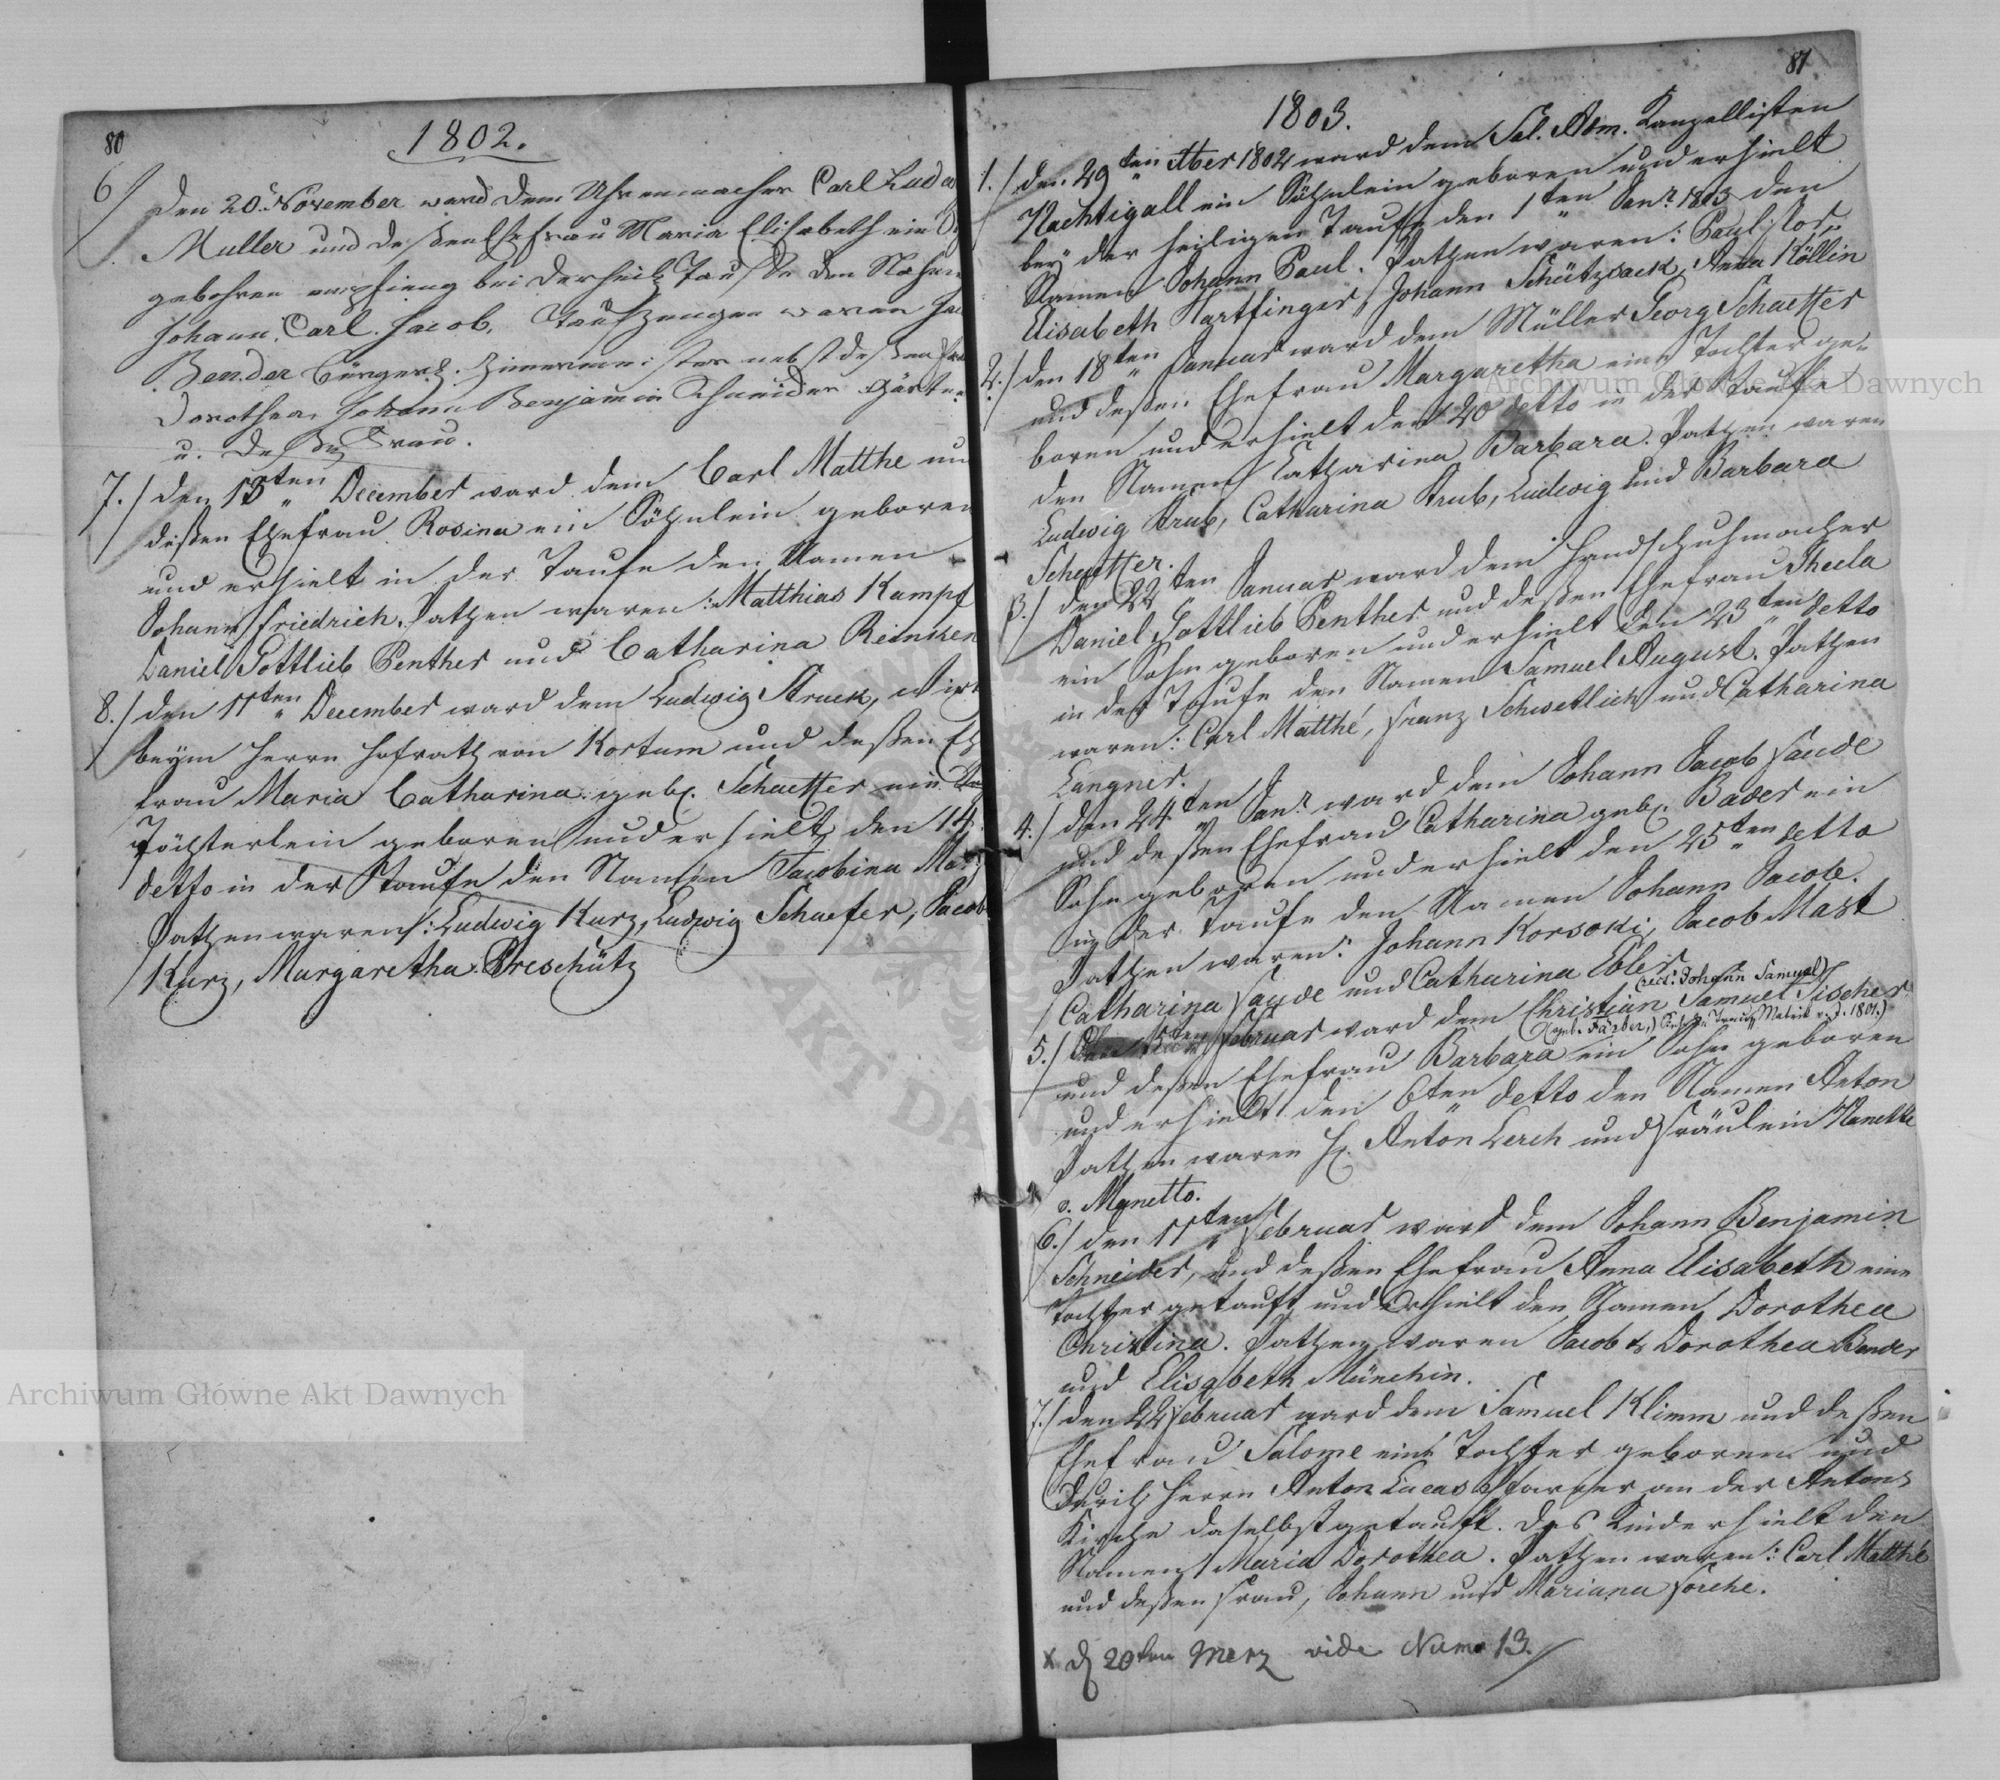 80
1802.
6./ den 20. November ward dem Uhrenmacher Carl Ludwig
Muller und deßen Ehefrau Maria Elisabeth ein
gebohren empfieng bei der heil. Tauffe den Nahmen
Johann, Carl. Jacob. Taufzeugen waren
Bender Bürgerl. Zimmermeister nebst deßen
Dorothea, Johann Benjamin Schneider Gärtner
u. deßen Frau.
7./ den 13ten December ward dem Carl Matthe und
deßen Ehefrau Rosina ein Söhnlein geboren
und erhielt in der Taufe den Namen
Johann Friedrich. Pathen waren: Matthias Kampf
Daniel Gottlieb Penther und Catharina
8./ den 11ten December ward dem Ludwig Struck, Wirt
beym Herrn Hofrath von Kortum und deßen
frau Maria Catharina geb. Schaeffer ein
Töchterlein geboren und erhielt den 14
detto in der Taufe den Namen Jacobina
Pathen waren: Ludwig Kurz, Ludwig Schaefer, Jacob
Kurz, Margaretha Dreschütz
81
1803.
1./ den 29ten Xber 1802 ward dem Sal. Adm. Kanzellisten
Nachtigall ein Söhnlein geboren und erhielt
bey der heiligen Taufe den 1ten Janr. 1803 den
Namen Johann Paul. Pathen waren: Paul
Elisabeth Hartfinger, Johann Schützsack, Anna Köllin
2./ den 18ten Januar ward dem Müller Georg Schaeffer
und deßen Ehefrau Margaretha eine Tochter ge-
boren und erhielt den 20 detto in der Taufe
den Namen Catharina Barbara. Pathen waren
Ludwig Strub, Catharina Strub, Ludwig und Barbara
Schaeffer.
3./ den 22ten Januar ward dem Handschuhmacher
Daniel Gottlieb Penther und deßen Ehefrau Thecla
ein Sohn geboren und erhielt den 23ten detto
in der Taufe den Namen Samuel August. Pathen
waren: Carl Matthé, Franz Schwetlich und Catharina
Langner.
4./ den 24ten Janr. ward dem Johann Jacob Faude
und deßen Ehefrau Catharina geb. Bader ein
Sohn geboren und erhielt den 25ten detto
in der Taufe den Namen Johann Jacob.
Pathen waren: Johann Korsoki, Jacob Mast
Catharina Faude und Catharina Ebler
(rect. Johann Samuel)
5./ Den 5ten Februar ward dem Christian Samuel Fischer
(geb. Färber, Trauungs Matrik v. J. 1801.)
und deßen Ehefrau Barbara ein Sohn geboren
und erhielt den 6ten detto den Namen Anton
Pathen waren H. Anton Lerch und Fräulein Nanette
v. Manetto.
6./ den 11ten Februar ward dem Johann Benjamin
Schneider, und deßen Ehefrau Anna Elisabeth eine
Tochter getauft und erhielt den Namen Dorothea
Christina. Pathen waren Jacob & Dorothea Bender
und Elisabeth Münchin.
7./ den 22 Februar ward dem Samuel Klimm und deßen
Ehefrau Salome eine Tochter geboren und
durch Herrn Anton Lucas Pfarrer an der Antons
Kirche daselbst getauft. Das Kind erhielt den
Namen Maria Dorothea. Pathen waren: Carl Matthé
und deßen Frau, Johann und Mariana Forche.
x d 20ten Merz vide Num 13./
Archiwum Główne Akt Dawnych
Archiwum Główne Akt Dawnych